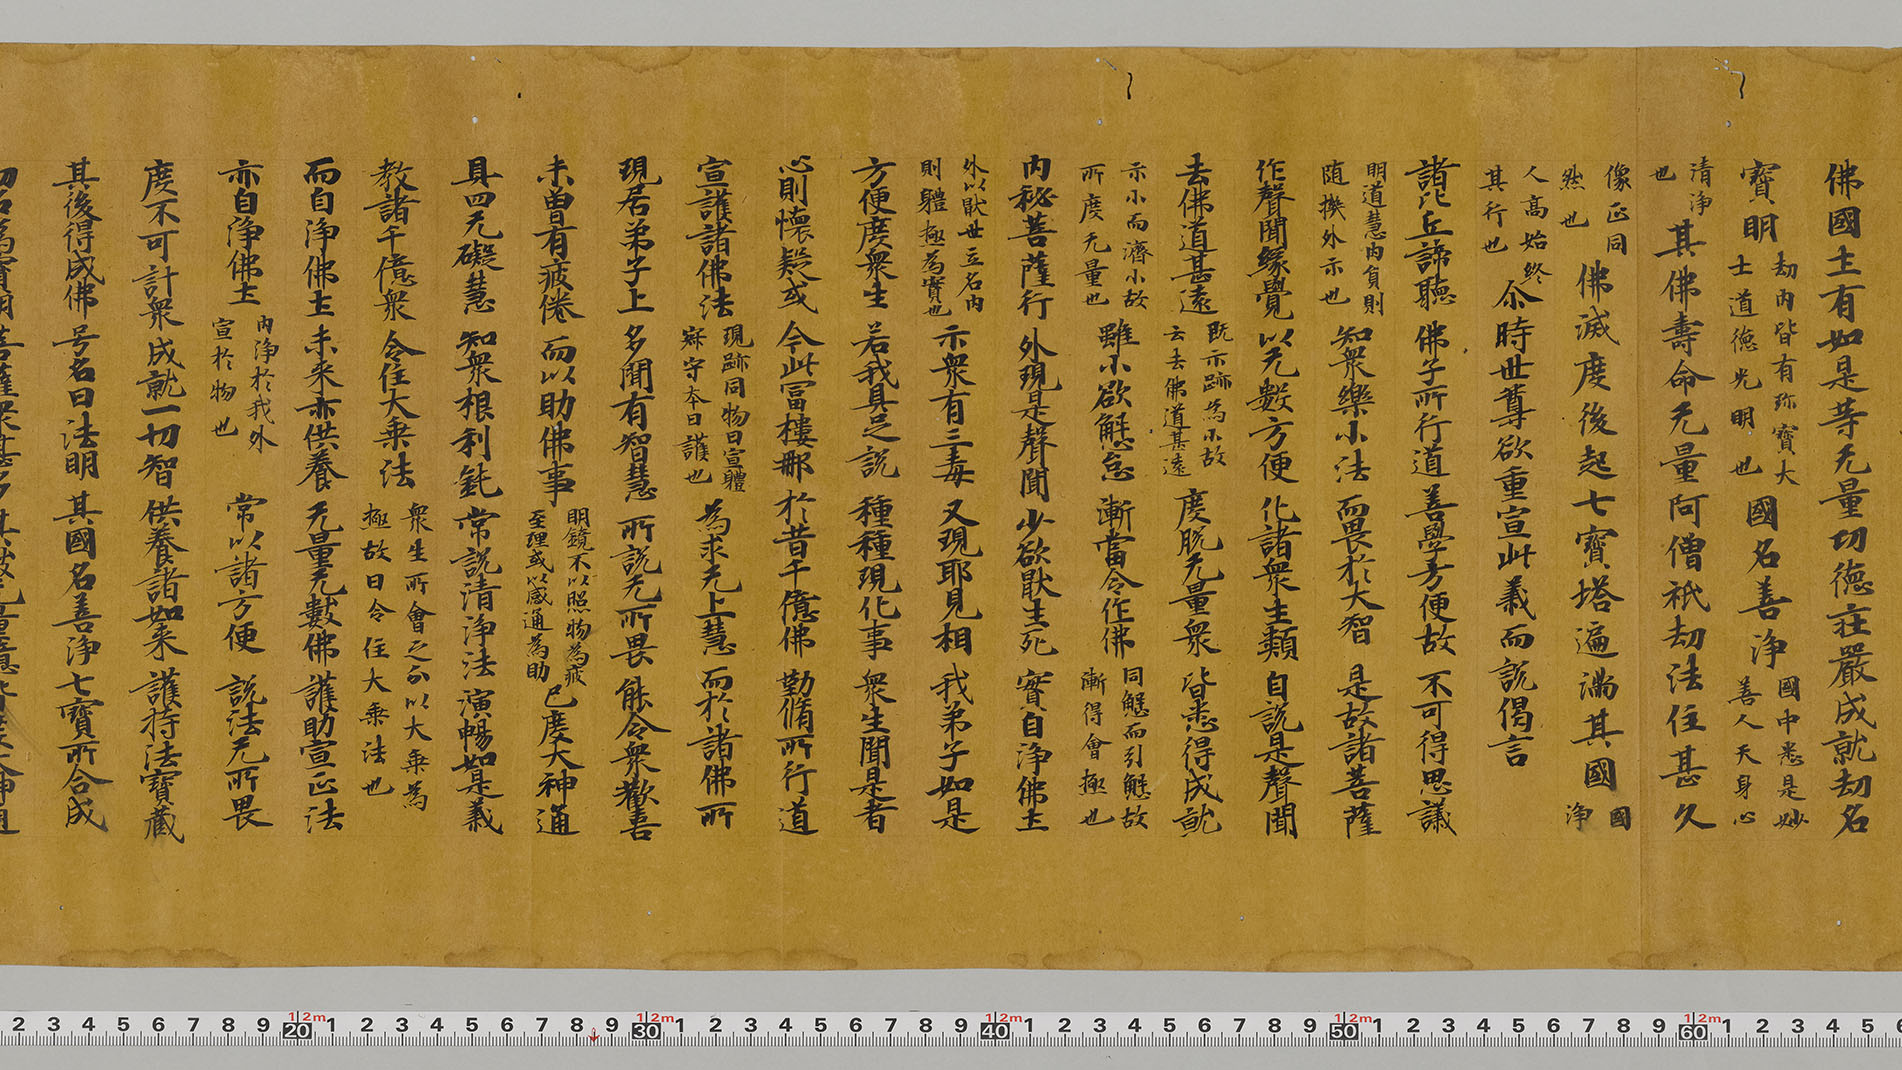 佛國土有如是等无量功德莊嚴成就劫名
寶明劫內皆有珎寶大士道德光明也國名善淨國中悉是妙善人天身心
清淨也其佛壽命无量阿僧祇劫法住甚久
像正同然也佛滅度後起七寶塔遍滿其國國淨
人高始終其行也尒時世尊欲重宣此義而說偈言
諸比丘諦聽 佛子所行道 善學方便故 不可得思議
明道慧內負則随機外示也 知衆樂小法 而畏於大智 是故諸菩薩
作聲聞緣覺 以无數方便 化諸衆生類 自說是聲聞
去佛道甚遠 既示跡為小故云去佛道甚遠 度脫无量衆 皆悉得成就
示小而濟小故所度无量也 雖小欲懈怠 漸當令作佛 同懈而引懈故漸得會極也
內秘菩薩行 外現是聲聞 少欲猒生死 實自淨佛土
外以猒世立名內則體極為實也 示衆有三毒 又現耶見相 我弟子如是
方便度衆生 若我具足說 種種現化事 衆生聞是者
心則懷疑或 今此冨樓那 於昔千億佛 勤脩所行道
宣護諸佛法 現跡同物曰宣體寂守本曰護也 為求无上慧 而於諸佛所
現居弟子上 多聞有智慧 所說无所畏 能令衆歡喜
未曾有疲倦 而以助佛事 明鏡不以照物為疲至理或以感通為助 已度大神通
具四无礙慧 知衆根利鈍 常說清淨法 演暢如是義
教諸千億衆 令住大乘法 衆生所會之分以大乘為極故曰令住大乘法也
而自淨佛土 未来亦供養 无量无數佛 護助宣正法
亦自淨佛土 內淨於我外宣於物也 常以諸方便 說法无所畏
度不可計衆 成就一切智 供養諸如来 護持法寶藏
其後得成佛 号名曰法明 其國名善淨 七寶所合成
劫名為寶明 菩薩衆甚多
2 3 4 5 6 7 8 9 20 1 2 3 4 5 6 7 8 9 30 1 2 3 4 5 6 7 8 9 40 1 2 3 4 5 6 7 8 9 50 1 2 3 4 5 6 7 8 9 60 1 2 3 4 5 6
12m 12m 12m 12m 12m